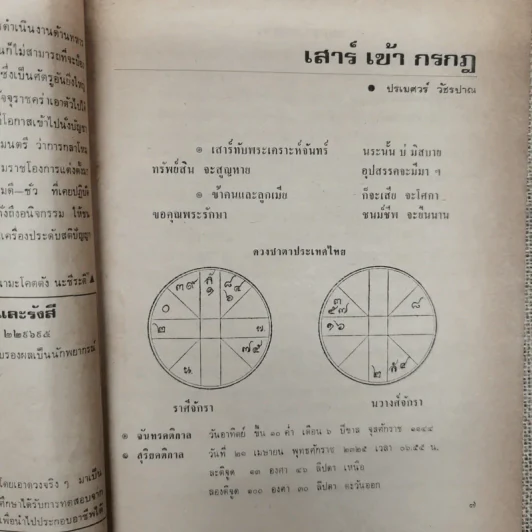 ดำเนินงานด้านทหาร
นก็ไม่สามารถที่จะ
ซึ่งเป็นศัตรูอันยิ่งใหญ่
โอกาสเข้าไปนั่งบัญชา
มนตรี ว่าการกลาโหม
มราชโองการแต่งตั้ง
มดี—ชั่ว ที่เคยปฏิบัติ
ถึงอนิจกรรม ให้ชน
เครื่องประดับสติปัญญา
นามะโคตตัง นะชีระติ ▲
และรังสี
๒๒๕๖๙๕
บรองผลเป็นนักพยากรณ์
โดยเอาดวงจริง ๆ มาเป็น
ศึกษาได้รับการทดสอบจาก
เพื่อนำไปประกอบอาชีพได้
เสาร์ เข้า กรกฎ
● ปรเมศวร์ วัชรปาณ
๏ เสาร์ทับพระเคราะห์จันทร์ นระนั้น บ่ มิสบาย
ทรัพย์สิน จะสูญหาย อุปสรรคจะมีมา ฯ
๏ ข้าคนและลูกเมีย ก็จะเสีย จะโศกา
ขอคุณพระรักษา ชนม์ชีพ จะยืนนาน
ดวงชาตาประเทศไทย
ราศีจักรา นวางศ์จักรา
๏ จันทรคติกาล วันอาทิตย์ ขึ้น ๑๐ ค่ำ เดือน ๖ ปีขาล จุลศักราช ๑๑๔๔
๏ สุริยคติกาล วันที่ ๒๑ เมษายน พุทธศักราช ๒๓๒๕ เวลา ๐๖.๕๔ น.
ละติจูด ๑๓ องศา ๔๖ ลิปดา เหนือ
ลองติจูด ๑๐๐ องศา ๓๐ ลิปดา ตะวันออก
๗